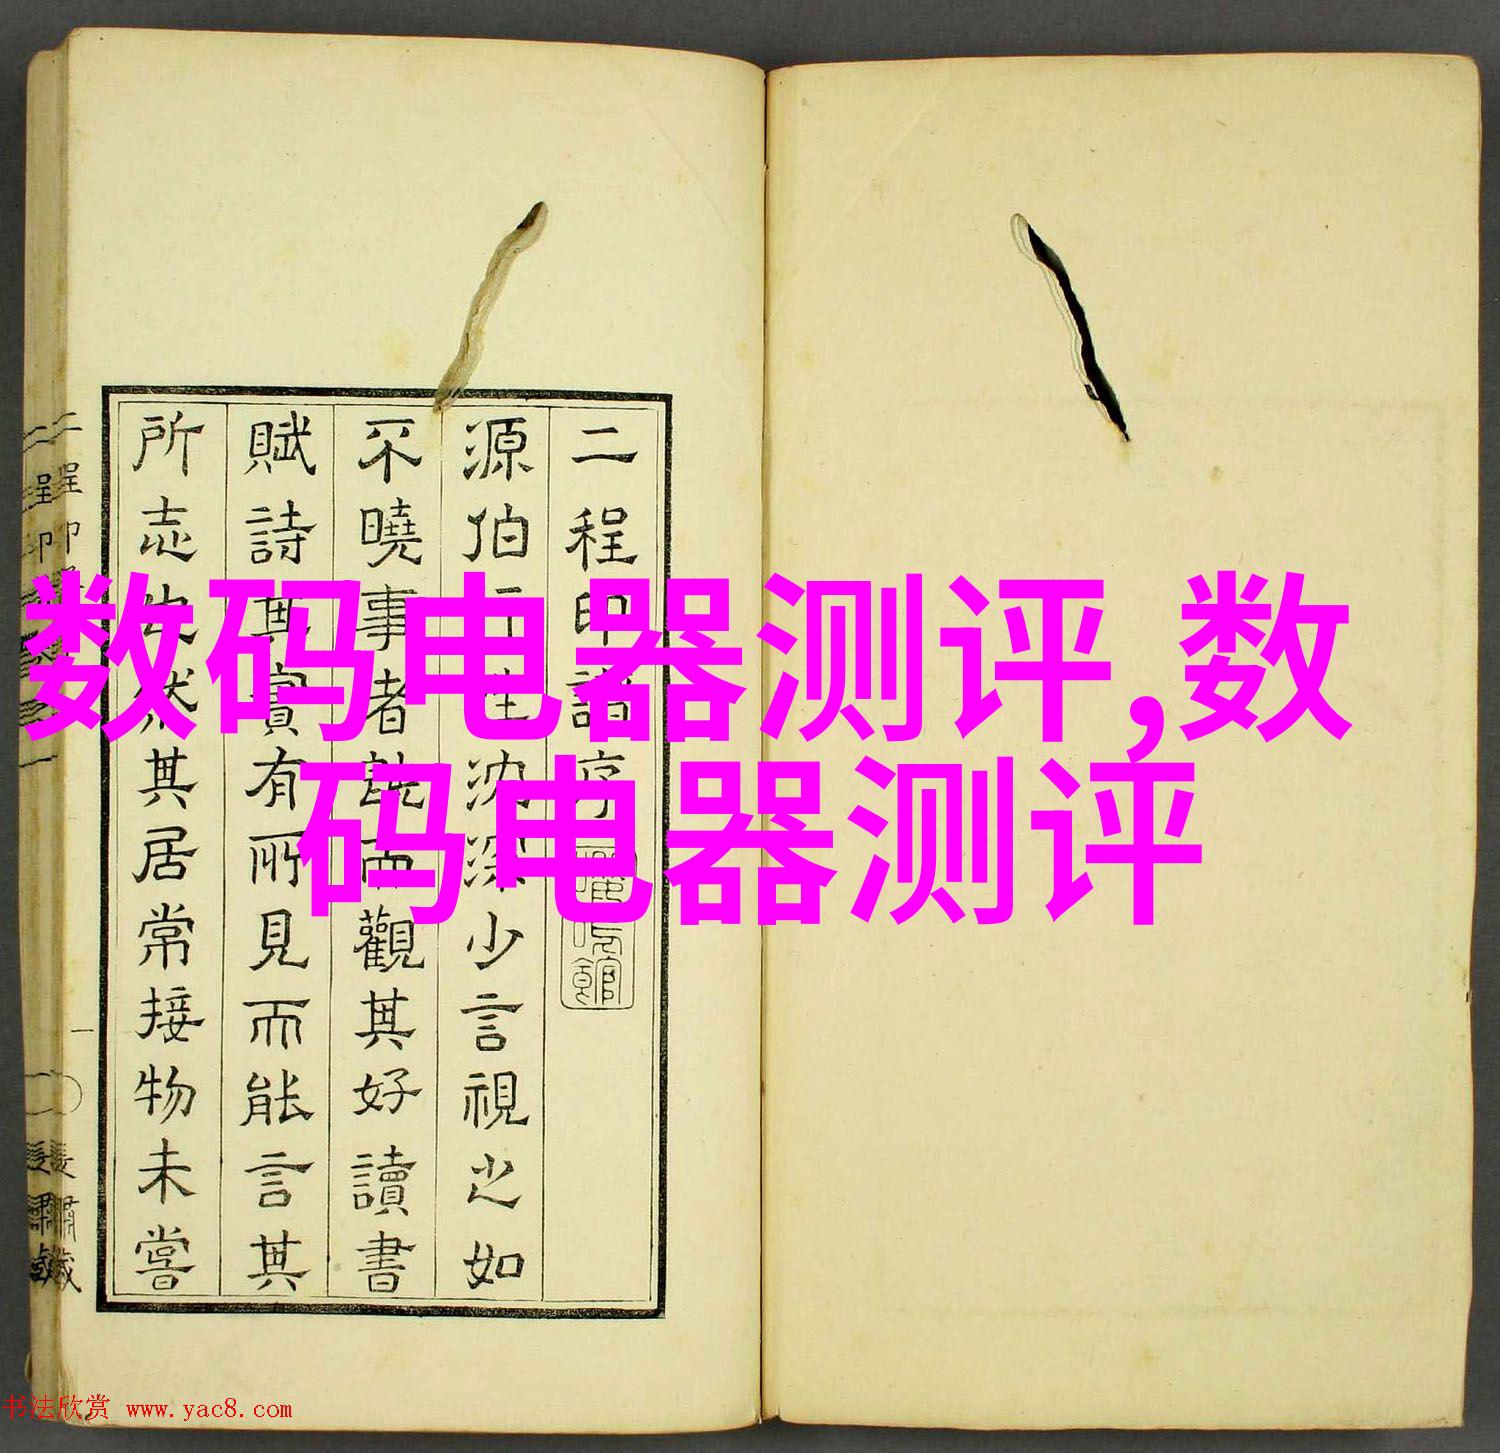 数码电器测评,数
码电器测评
二程印譜序
源伯行性沈深少言視之如
不曉事者既而觀其好讀書
賦詩其實有所見而能言其
所志也然其居常接物未嘗
书法欣赏 www.yac8.com